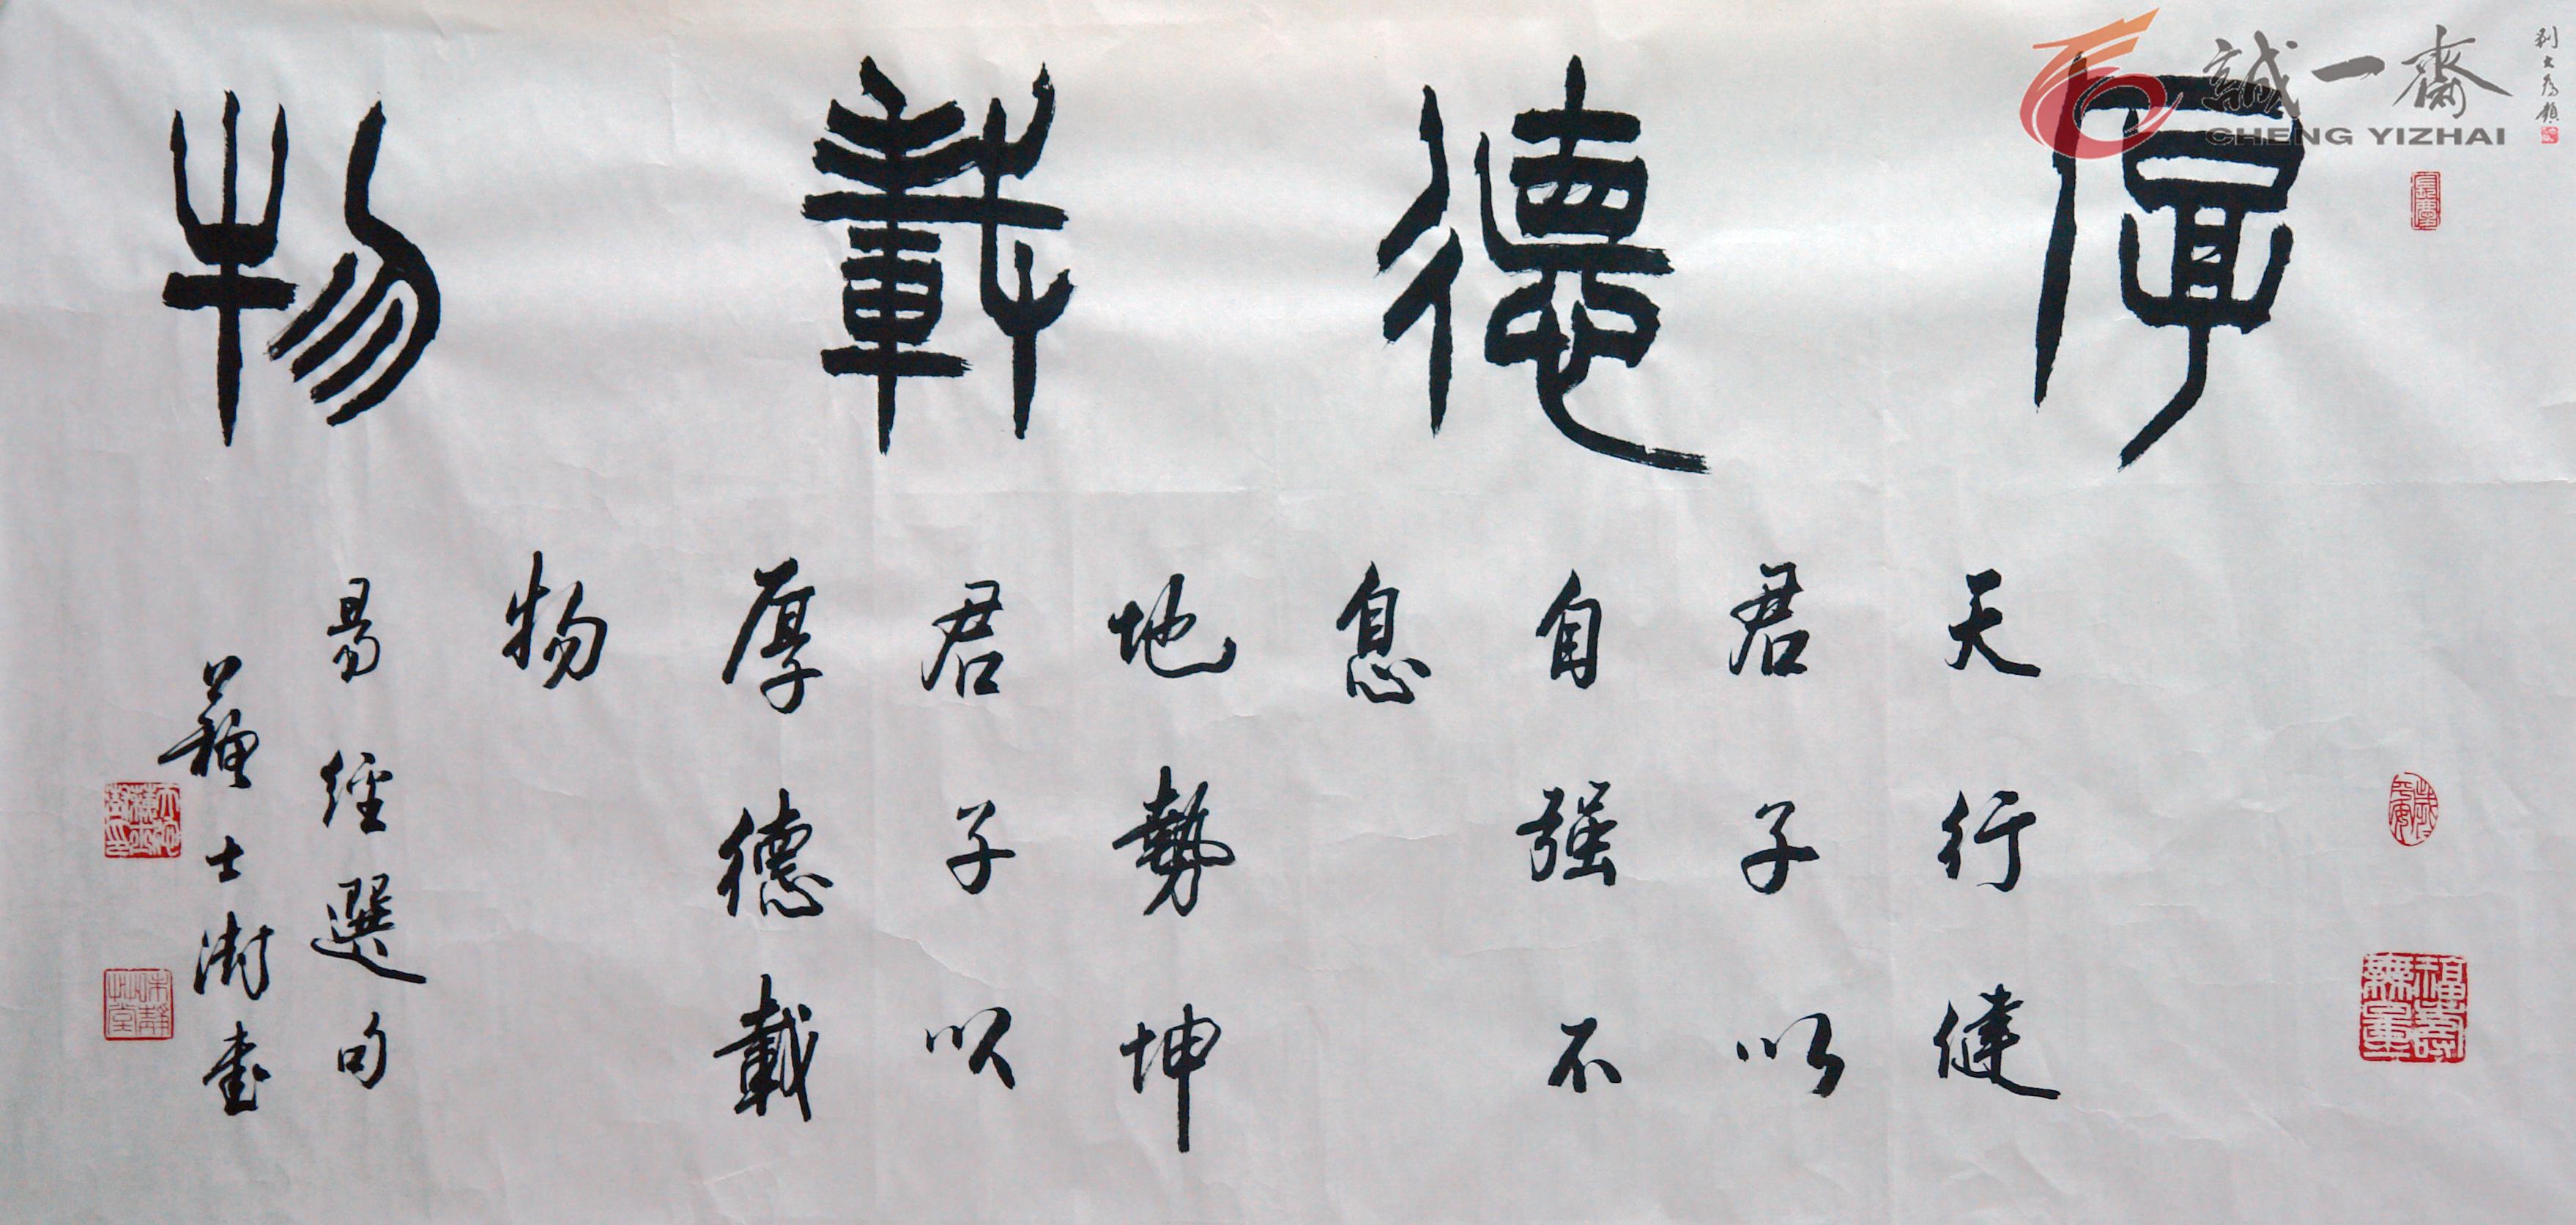 厚德載物
天行健
君子以
自强不
息
地勢坤
君子以
厚德載
物
易經選句
蘇士澍書
福壽無量
誠一齋
CHENG YIZHAI